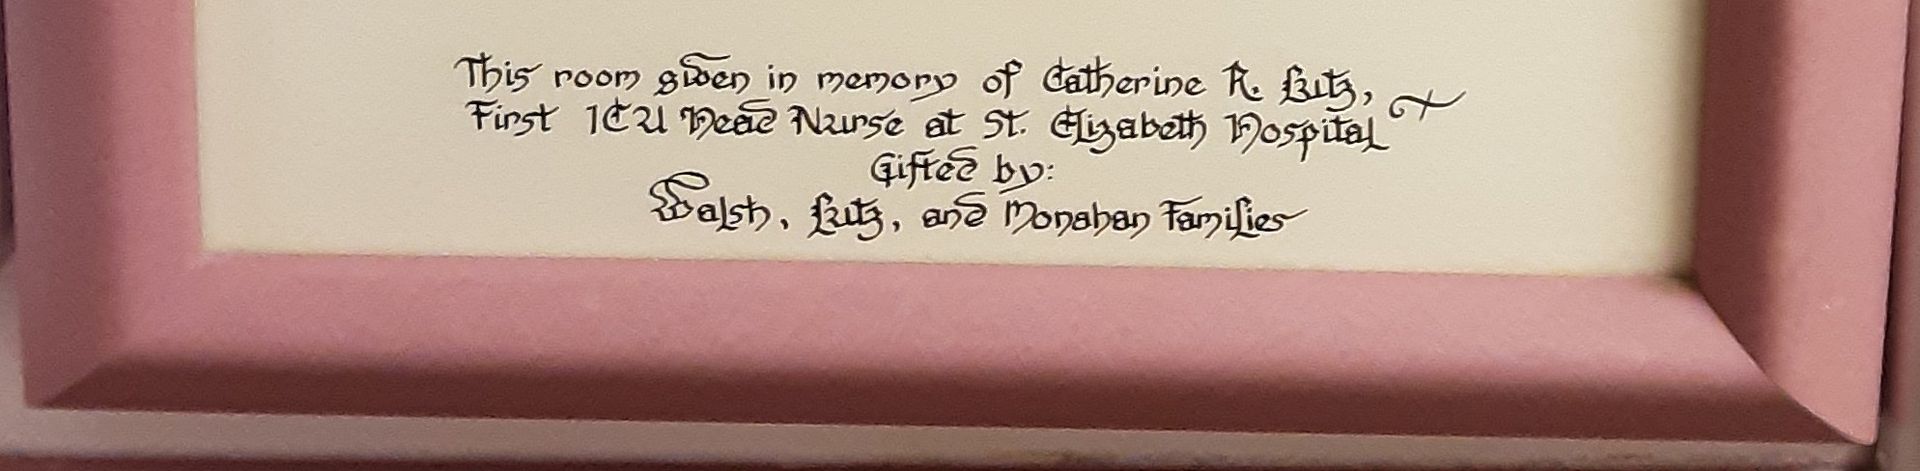 This room given in memory of Catherine R. Lutz,
First ICU Head Nurse at St. Elizabeth Hospital
Gifted by:
Walsh, Lutz, and Monahan Families